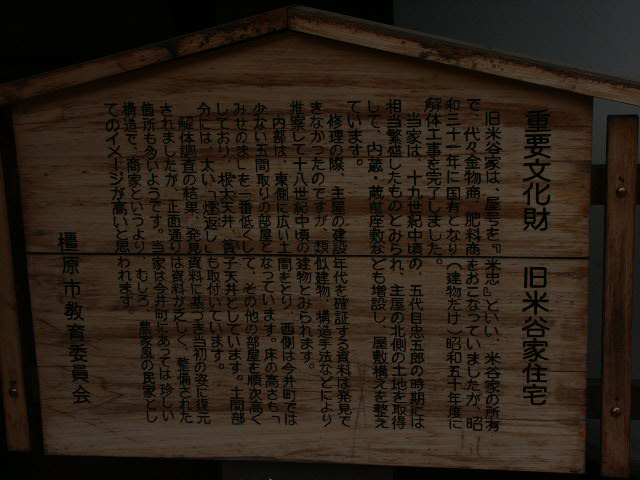 重要文化財　旧米谷家住宅
旧米谷家は、屋号を『米忠』といい、米谷家の所有
で、代々金物商、肥料商をおこなっていましたが、昭
和三十一年に国有となり（建物だけ）昭和五十年度に
解体工事を完了しました。
当家は、十九世紀中頃の、五代目忠五郎の時期には
相当繁盛したものとみられ、主屋の北側の土地を取得
して、内蔵・蔵前座敷なども増設し、屋敷構えを整え
ています。
修理の際、主屋の建設年代を確証する資料は発見で
きなかったのですが、類似建物、構造手法などにより
推察して十八世紀中頃の建物とみられます。
内部は、東側に広い土間をとり、西側は今井町では
少ない五間取りの部屋となっています。床の高さも「
みせの床」を一番低くして、その他の部屋を順次高く
しており、根太天井、簀子天井としています。土間部
分には、太い「煙返し」も取付いています。
解体調査の結果、発見資料に基づき当初の姿に復元
されましたが、正面通りは資料が乏しく、整備された
箇所も多いようです。当家は今井町にあっては珍しい
構造で、商家というより、むしろ、農家風の民家とし
てのイメージが高いと思われます。
橿原市教育委員会